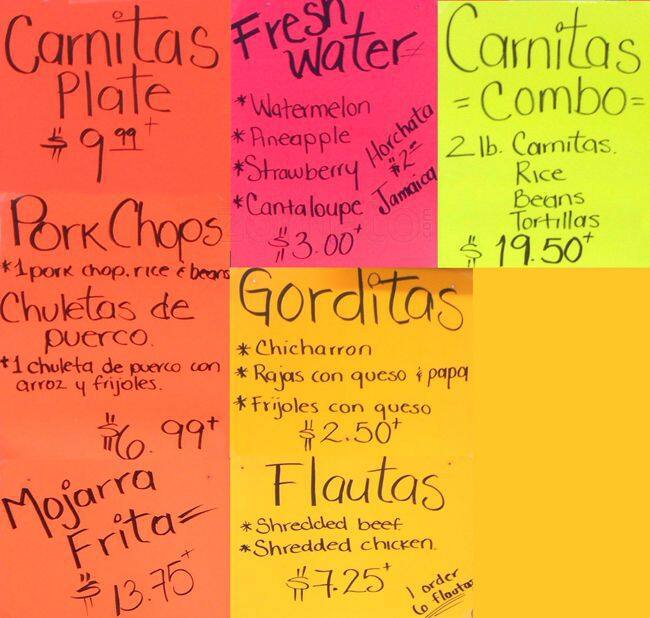 Carnitas
Plate
$9.99+
Pork Chops
*1 pork chop. rice & beans
Chuletas de
puerco.
*1 chuleta de puerco con
arroz y frijoles.
$6.99+
Mojarra
Frita=
$13.75+
Fresh
Water
*Watermelon
*Pineapple
*Strawberry
*Cantaloupe
$3.00+
Horchata
$2.00
Jamaica
Gorditas
*Chicharron
*Rajas con queso & papa
*Frijoles con queso
$2.50+
Flautas
*Shredded beef
*Shredded chicken.
$7.25+
1 order
6 flautas
Carnitas
=Combo=
2 lb. Carnitas.
Rice
Beans
Tortillas
$19.50+